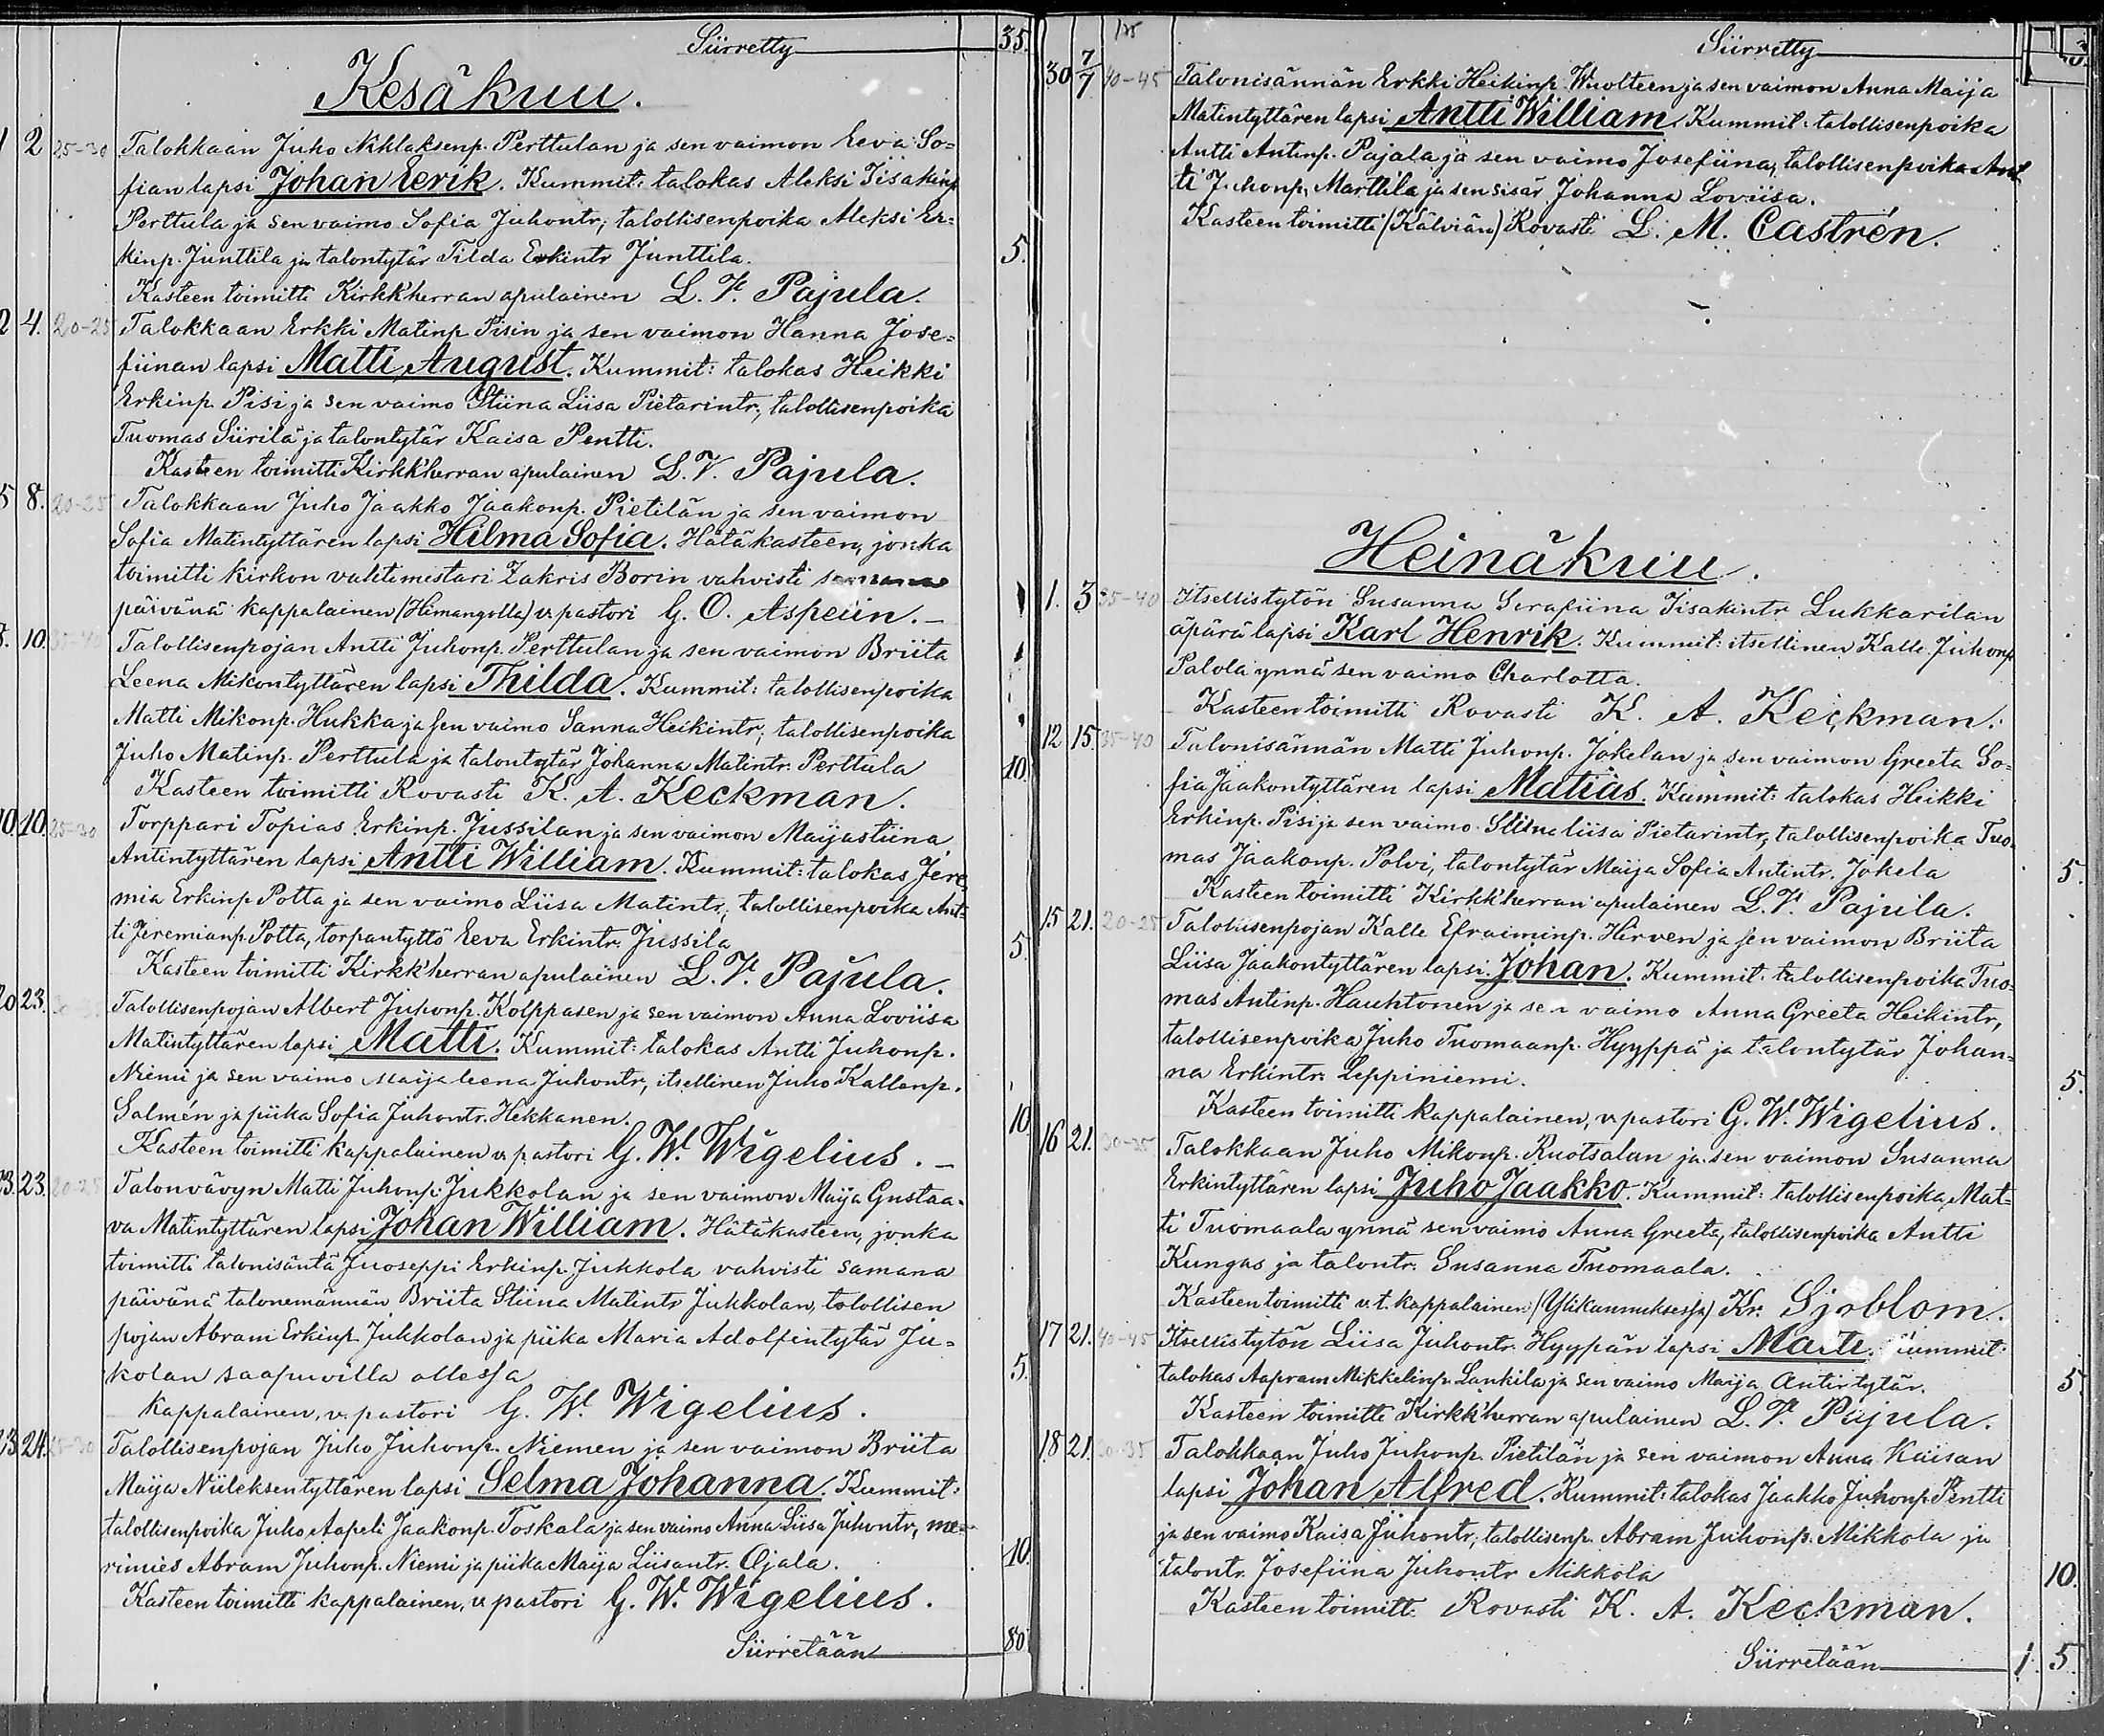 Siirretty 35.
Kesäkuu.
1 2 25-30 Talokkaan Juho Niklaksenp. Perttulan ja sen vaimon Eeva So=
fian lapsi Johan Eerik. Kummit: talokas Aleksi Iisakinp
Perttula ja sen vaimo Sofia Juhontr, talollisenpoika Aleksi Er=
kinp. Junttila ja talontytär Tilda Erkintr Junttila. 5.
Kasteen toimitti Kirkk'herran apulainen L. V. Pajula.
2 4. 20-25 Talokkaan Erkki Matinp Pisin ja sen vaimon Hanna Jose=
fiinan lapsi Matti August. Kummit: talokas Heikki
Erkinp. Pisi ja sen vaimo Stiina Liisa Pietarintr, talollisenpoika
Tuomas Siirilä ja talontytär Kaisa Pentti.
Kasteen toimitti Kirkk'herran apulainen L. V. Pajula.
5 8. 20-25 Talokkaan Juho Jaakko Jaakonp. Pietilän ja sen vaimon
Sofia Matintyttären lapsi Hilma Sofia. Hätäkasteen, jonka
toimitti kirkon vahtimestari Zakris Borin vahvisti samana
päivänä kappalainen (Himangolla) v. pastori G. O. Aspelin. —
8. 10. 35-40 Talollisenpojan Antti Juhonp. Perttulan ja sen vaimon Briita
Leena Mikontyttären lapsi Thilda. Kummit: talollisenpoika
Matti Mikonp. Hukka ja sen vaimo Sanna Heikintr, talollisenpoika
Juho Matinp. Perttula ja talontytär Johanna Matintr. Perttula 10.
Kasteen toimitti Rovasti K. A. Keckman.
10. 10. 25-30 Torppari Topias Erkinp. Jussilan ja sen vaimon Maijastiina
Antintyttären lapsi Antti William. Kummit: talokas Jere
mia Erkinp Potta ja sen vaimo Liisa Matintr, talollisenpoika Ant=
ti Jeremianp. Potta, torpantyttö Eeva Erkintr. Jussila 5.
Kasteen toimitti Kirkk'herran apulainen L. V. Pajula.
20 23. Talollisenpojan Albert Juhonp. Kolppasen ja sen vaimon Anna Loviisa
Matintyttären lapsi Matti. Kummit: talokas Antti Juhonp.
Niemi ja sen vaimo Maija leena Juhontr, itsellinen Juho Kallenp.
Salmén ja piika Sofia Juhontr. Hekkanen. 10
Kasteen toimitti kappalainen v. pastori G. W. Wigelius. —
23. 23. 20-25 Talonvävyn Matti Juhonp. Jukkolan ja sen vaimon Maija Gustaa-
va Matintyttären lapsi Johan William. Hätäkasteen, jonka
toimitti talonisäntä Juoseppi Erkinp. Jukkola vahvisti samana
päivänä talonemännän Briita Stiina Matintr Jukkolan, talollisen
pojan Abram Erkinp Jukkolan ja piika Maria Adolfintytär Ju=
kolan saapuvilla ollessa 5.
Kappalainen, v. pastori G. W. Wigelius.
23. 24. 25-30 Talollisenpojan Juho Juhonp. Niemen ja sen vaimon Briita
Maija Niileksentyttären lapsi Selma Johanna. Kummit:
talollisenpoika Juho Aapeli Jaakonp. Toskala ja sen vaimo Anna Liisa Juhontr, me=
rimies Abram Juhonp. Niemi ja piika Maija Liisantr. Ojala. 10.
Kasteen toimitti kappalainen, v. pastori G. W. Wigelius.
Siirretään 80
Siirretty
30 7/7 40-45 Talonisännän Erkki Heikinp. Wuolteen ja sen vaimon Anna Maija
Matintyttären lapsi Antti William. Kummit: talollisenpoika
Antti Antinp. Pajala ja sen vaimo Josefiina, talollisenpoika Ant
ti Juhonp. Marttila ja sen sisar Johanna Loviisa.
Kasteen toimitti (Kälviän) Rovasti L. M. Castrén.
Heinäkuu.
1. 3 35-40 Itsellistytön Susanna Serafiina Iisakintr Lukkarilan
äpärä lapsi Karl Henrik. Kummit: itsellinen Kalle Juhonp
Palola ynnä sen vaimo Charlotta.
Kasteen toimitti Rovasti K. A. Keckman.
12 15. 35-40 Talonisännän Matti Juhonp. Jokelan ja sen vaimon Greeta So=
fia Jaakontyttären lapsi Matias. Kummit: talokas Heikki
Erkinp. Pisi ja sen vaimo Stiina liisa Pietarintr, talollisenpoika Tuo
mas Jaakonp. Polvi, talontytär Maija Sofia Antintr. Jokela 5.
Kasteen toimitti Kirkk'herran apulainen L. V. Pajula.
15 21. 20-25 Talollisenpojan Kalle Efraiminp. Hirven ja sen vaimon Briita
Liisa Jaakontyttären lapsi Johan. Kummit: talollisenpoika Tuo=
mas Antinp. Hauhtonen ja sen vaimo Anna Greeta Heikintr,
talollisenpoika Juho Tuomaanp. Hyyppä ja talontytär Johan=
na Erkintr. Leppiniemi. 5.
Kasteen toimitti kappalainen, v. pastori G. W. Wigelius.
16 21. 30-35 Talokkaan Juho Mikonp. Ruotsalan ja sen vaimon Susanna
Erkintyttären lapsi Juho Jaakko. Kummit: talollisenpoika Mat=
ti Tuomaala ynnä sen vaimo Anna Greeta, talollisenpoika Antti
Kungas ja talontr. Susanna Tuomaala.
Kasteen toimitti v. t. kappalainen (Ylikannuksessa) Kr. Sjöblom.
17 21. 40-45 Itsellistytön Liisa Juhontr. Hyypän lapsi Matti. Kummit:
talokas Aapram Mikkelinp. Lankila ja sen vaimo Maija Antintytär. 5
Kasteen toimitti Kirkk'herran apulainen L. V. Pajula.
18 21. 30-35 Talokkaan Juho Juhonp. Pietilän ja sen vaimon Anna Kaisan
lapsi Johan Alfred. Kummit: talokas Jaakko Juhonp. Pentti
ja sen vaimo Kaisa Juhontr, talollisenp. Abram Juhonp. Mikkola ja
talontr. Josefiina Juhontr Mikkola 10.
Kasteen toimitti Rovasti K. A. Keckman.
Siirretään 1. 5.